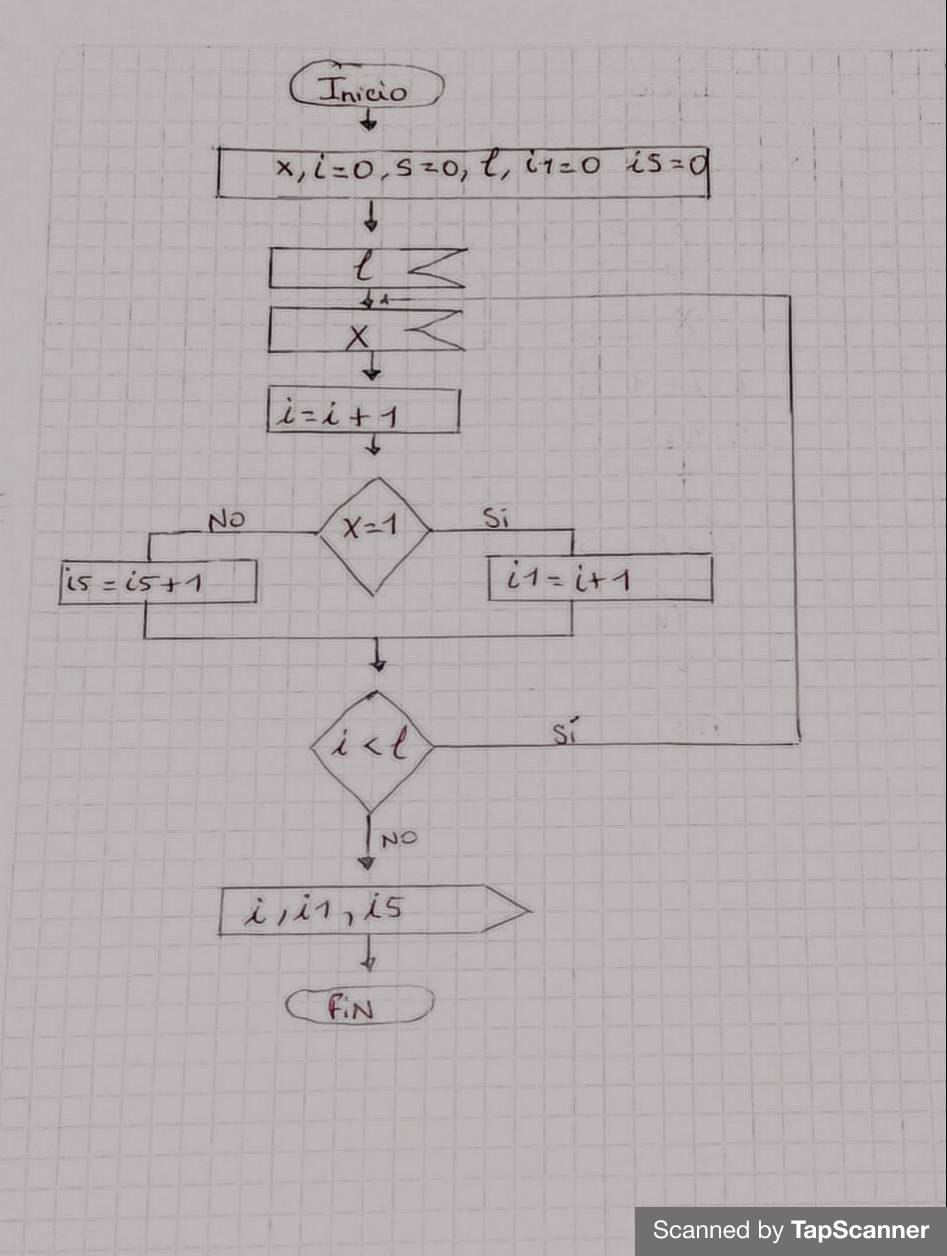 Inicio
x, i=0, s=0, l, i1=0 i5=0
l
x
i=i+1
x=1
NO
Si
i5=i5+1
i1=i+1
i<l
Sí
NO
i, i1, i5
FiN
Scanned by TapScanner